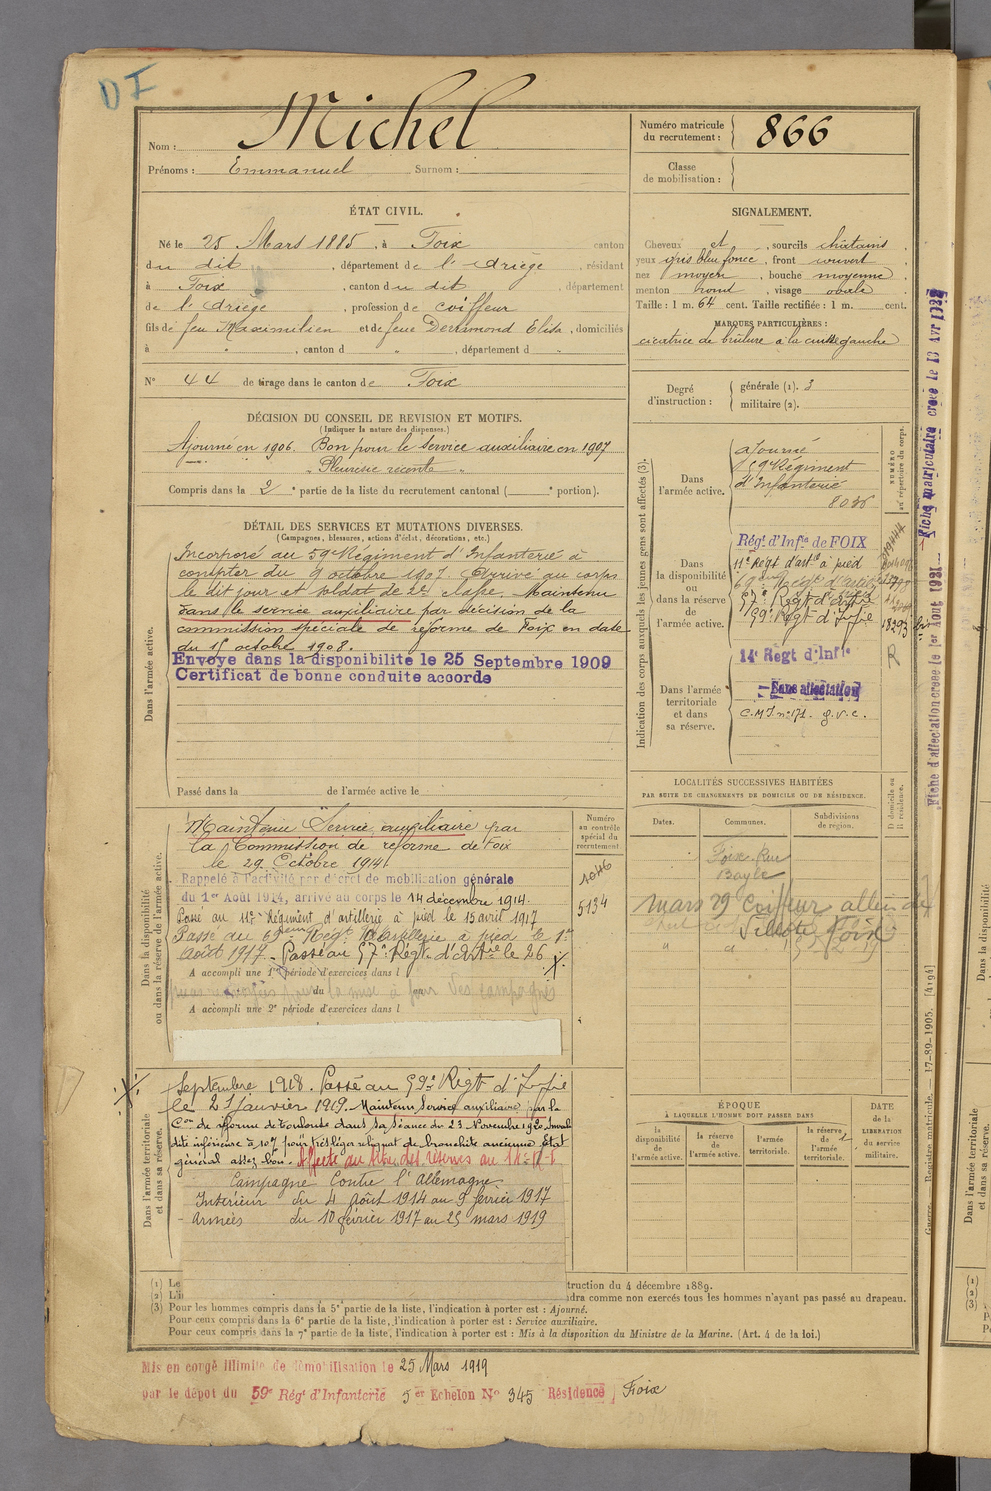 DI
Nom : Michel
Prénoms : Emmanuel Surnom :
Numéro matricule du recrutement : 866
Classe de mobilisation :
ÉTAT CIVIL.
Né le 25 Mars 1885, à Foix canton
du dit, département de l'Ariège, résidant
à Foix, canton du dit département
de l'Ariège, profession de coiffeur
fils de feu Maximilien et de feue Dermond Elisa, domiciliés
à " , canton d " , département d "
N° 44 de tirage dans le canton de Foix
DÉCISION DU CONSEIL DE REVISION ET MOTIFS.
(Indiquer la nature des dispenses.)
Ajourné en 1906. Bon pour le service auxiliaire en 1907
" Pleurésie récente "
Compris dans la 2e partie de la liste du recrutement cantonal ( e portion).
DÉTAIL DES SERVICES ET MUTATIONS DIVERSES.
(Campagnes, blessures, actions d'éclat, décorations, etc.)
Dans l'armée active.
Incorporé au 59e Régiment d'Infanterie à
compter du 9 octobre 1907. Arrivé au corps
le dit jour et soldat de 2e classe. Maintenu
dans le service auxiliaire par décision de la
commission spéciale de réforme de Foix en date
du 15 octobre 1908.
Envoyé dans la disponibilité le 25 Septembre 1909
Certificat de bonne conduite accordé
Passé dans la de l'armée active le
Dans la disponibilité ou dans la réserve de l'armée active.
Maintenu Service auxiliaire par
la Commission de réforme de Foix
le 29 Octobre 1914
Rappelé à l'activité par décret de mobilisation générale
du 1er Août 1914, arrivé au corps le 14 décembre 1914.
Passé au 11e Régiment d'artillerie à pied le 15 avril 1917
Passé au 69eme Régt d'artillerie à pied le 1er
août 1917. Passé au 57e Régt d'Artie le 26
A accompli une 1re période d'exercices dans l
du
la mise à jour des campagnes
A accompli une 2e période d'exercices dans l
Dans l'armée territoriale et dans sa réserve.
Septembre 1918. Passé au 59e Régt d'Infie
le 21 janvier 1919. Maintenu Service auxiliaire par la
Con de réforme de Toulouse dans sa séance du 23 Novembre 1920. Invali
dité inférieure à 10% pour très léger reliquat de bronchite ancienne. Etat
général assez bon. Affecté au titre des réserves au 14e R.I.
Campagne contre l'Allemagne.
Intérieur du 4 août 1914 au 9 février 1917
Armées du 10 février 1917 au 25 mars 1919
Numéro au contrôle spécial du recrutement
1046
5134
SIGNALEMENT.
Cheveux et, sourcils châtains,
yeux gris bleu foncé, front couvert,
nez moyen, bouche moyenne,
menton rond, visage ovale
Taille : 1 m. 64 cent. Taille rectifiée : 1 m. cent.
MARQUES PARTICULIÈRES :
cicatrice de brûlure à la cuisse gauche
Degré d'instruction : générale (1). 3
militaire (2).
Indication des corps auxquels les jeunes gens sont affectés (3).
NUMÉRO au répertoire du corps.
Dans l'armée active.
ajourné
59e Régiment
d'Infanterie
8036
Dans la disponibilité ou dans la réserve de l'armée active.
Régt d'Infie de FOIX
11e Régt d'artie à pied
69eme Régt d'artie
57e Régt d'artie
59e Régt d'Infie
18293 bis
14e Régt d'Infie
R
Dans l'armée territoriale et dans sa réserve.
Sans affectation
C.M.I. n° 171. g.v.c.
LOCALITÉS SUCCESSIVES HABITÉES
PAR SUITE DE CHANGEMENTS DE DOMICILE OU DE RÉSIDENCE.
Dates. Communes. Subdivisions de région. D domicile ou R résidence.
Foix Rue
Bayle
mars 29 Coiffeur
Villote Foix
ÉPOQUE
À LAQUELLE L'HOMME DOIT PASSER DANS
la disponibilité de l'armée active.
la réserve de l'armée active.
l'armée territoriale.
la réserve de l'armée territoriale.
DATE de la LIBÉRATION du service militaire.
Fiche d'affectation créée le 1er Août 1921
Fiche matriculaire créée le 10 Avr 1922
Registre matricule. — 17-89-1905. [4194]
(1) Le
truction du 4 décembre 1889.
(2) L'i
dra comme non exercés tous les hommes n'ayant pas passé au drapeau.
(3) Pour les hommes compris dans la 5e partie de la liste, l'indication à porter est : Ajourné.
Pour ceux compris dans la 6e partie de la liste, l'indication à porter est : Service auxiliaire.
Pour ceux compris dans la 7e partie de la liste, l'indication à porter est : Mis à la disposition du Ministre de la Marine. (Art. 4 de la loi.)
Mis en congé illimité de démobilisation le 25 Mars 1919
par le dépôt du 59e Régt d'Infanterie 5er Echelon No 345 Résidence Foix